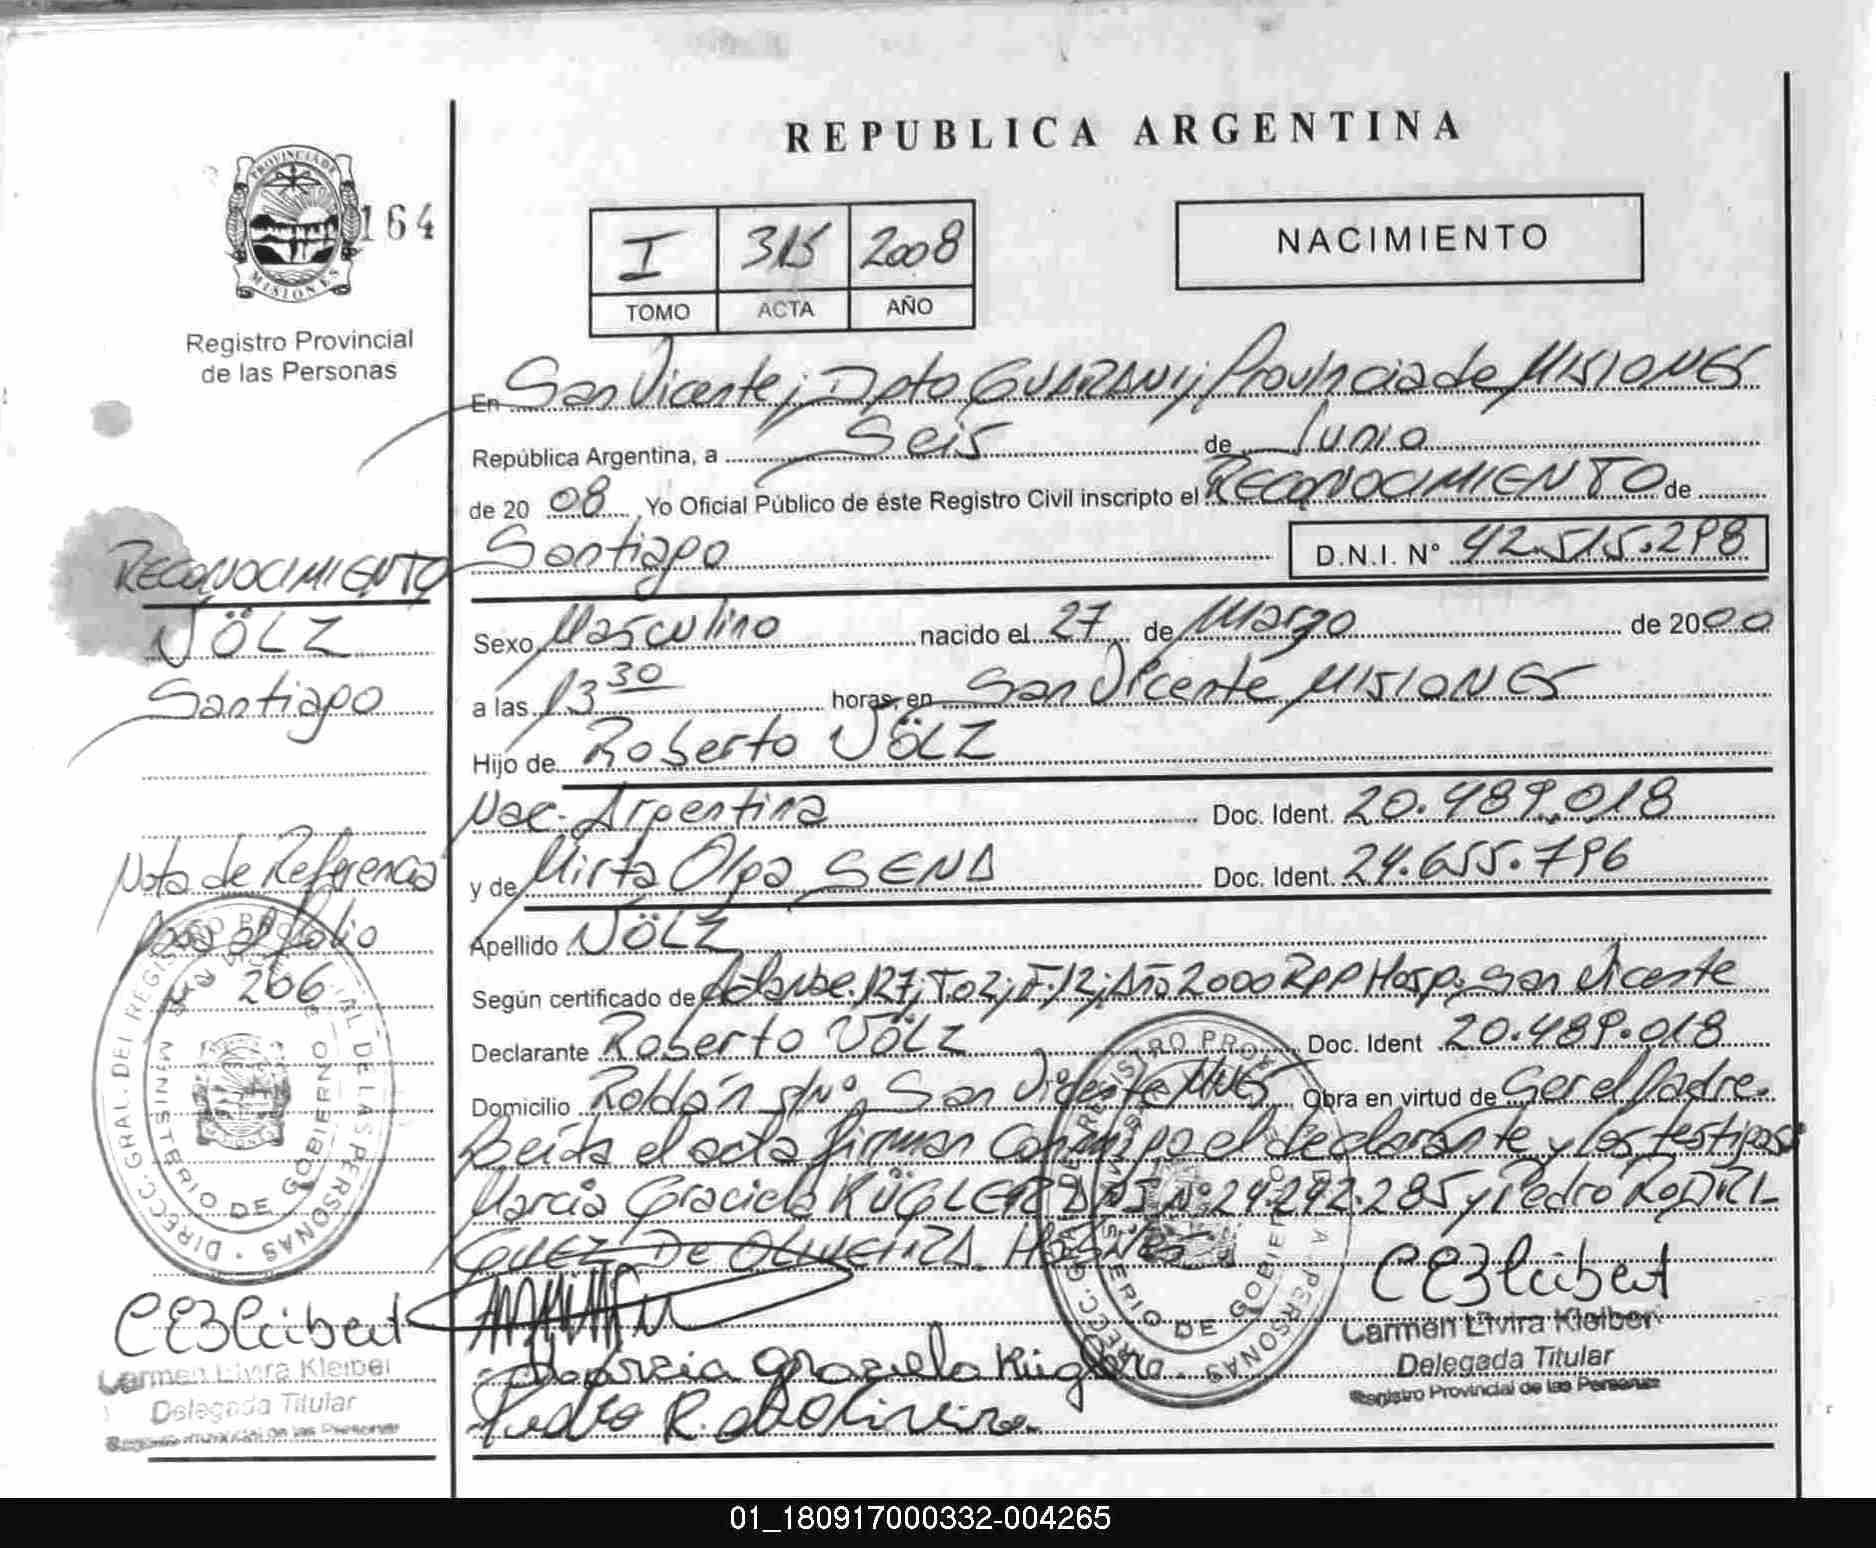 REPUBLICA ARGENTINA
PROVINCIA DE
MISIONES
164
Registro Provincial
de las Personas
I 315 2008
TOMO ACTA AÑO
NACIMIENTO
En San Vicente; Dpto GUARANI; Provincia de MISIONES
República Argentina, a Seis de Junio
de 20 08 Yo Oficial Público de éste Registro Civil inscripto el RECONOCIMIENTO de
Santiago D.N.I. N° 42.515.298
Sexo Masculino nacido el 27 de Marzo de 2000
a las 13 30 horas, en San Vicente MISIONES
Hijo de Roberto VÖLZ
Nac. Argentina Doc. Ident. 20.489.018
y de Mirta Olga SENA Doc. Ident. 24.655.796
Apellido VÖLZ
Según certificado de 127; To 2; F. 12; Año 2000 RPP Hosp. San Vicente
Declarante Roberto VÖLZ Doc. Ident 20.489.018
Domicilio Roldán s/Nº San Vicente MNES Obra en virtud de Ser el Padre.
Leída el acta firman conmigo el declarante y los testigos
Marcia Graciela KÜGLER DNI Nº 24.292.285 y Pedro RODRI-
GUEZ DE OLIVEIRA.
Marcia Graciela Kügler
Pedro R. de Oliveira
Carmen Elvira Kleiber
Delegada Titular
Registro Provincial de las Personas
RECONOCIMIENTO
VÖLZ
Santiago
Nota de Referencia
Pasa al folio
Nº 266
DIRECC. GRAL. DEL REGISTRO PROVINCIAL DE LAS PERSONAS
MINISTERIO DE GOBIERNO
SAN VICENTE
Carmen Elvira Kleiber
Delegada Titular
Registro Provincial de las Personas
01_180917000332-004265